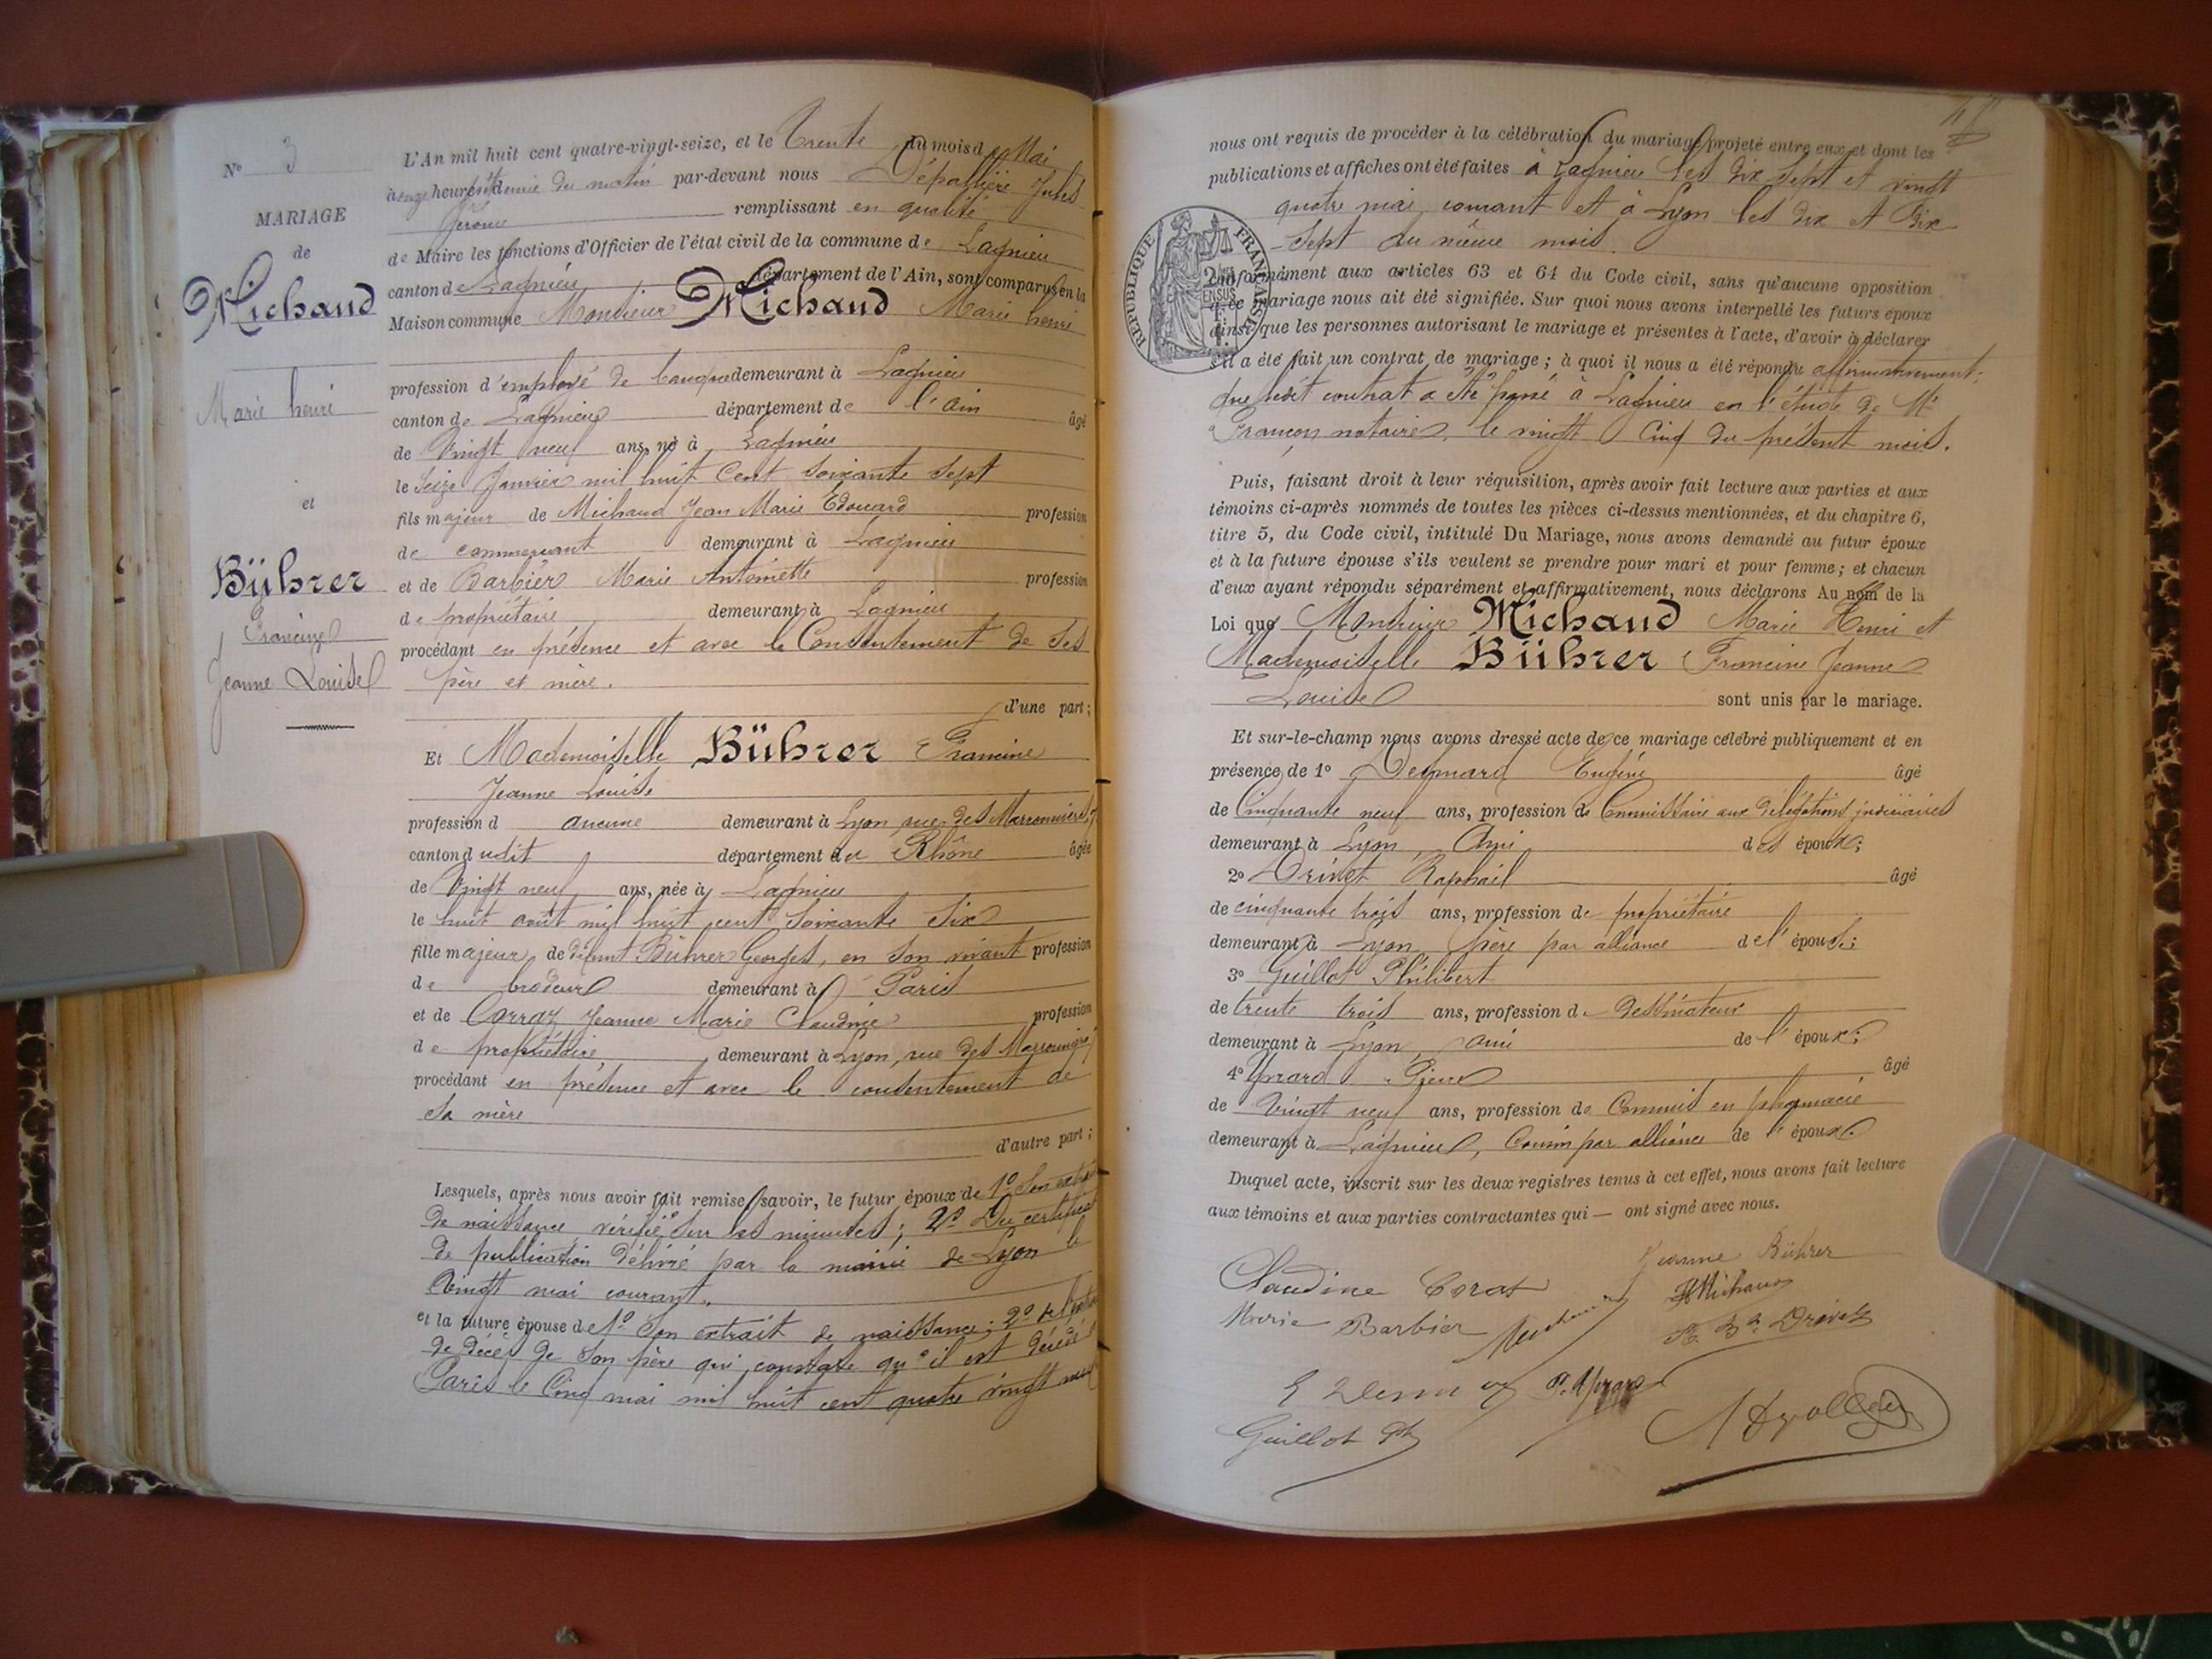 N° 3
MARIAGE
de
Michaud
Marie henri
et
Bührer
Francine
Jeanne Louise
L'An mil huit cent quatre-vingt-seize, et le Trente du mois de Mai
à onze heures et demie du matin par-devant nous Jules
Jérôme remplissant en qualité
de Maire les fonctions d'Officier de l'état civil de la commune de Lagnieu
canton de Lagnieu département de l'Ain, sont comparus en la
Maison commune Monsieur Michaud Marie henri
profession d'employé de banque demeurant à Lagnieu
canton de Lagnieu département de l'ain âgé
de Vingt neuf ans, né à Lagnieu
le Seize Janvier mil huit Cent soixante sept
fils majeur de Michaud Jean Marie Edouard profession
de commerçant demeurant à Lagnieu
et de Barbier Marie Antoinette profession
de propriétaire demeurant à Lagnieu
procédant en présence et avec le Consentement de ses
père et mère.
d'une part;
Et Mademoiselle Bührer Francine
Jeanne Louise
profession d aucune demeurant à Lyon, rue des Marronniers, 7
canton dudit département du Rhône âgée
de Vingt neuf ans, née à Lagnieu
le huit août mil huit cent soixante six
fille majeur de défunt Bührer Georges, en son vivant profession
de brodeur demeurant à Paris
et de Corraz Jeanne Marie Claudine profession
de propriétaire demeurant à Lyon, rue des Marronniers
procédant en présence et avec le consentement de
sa mère
d'autre part;
Lesquels, après nous avoir fait remise, savoir, le futur époux de 1° Son extrait
de naissance, vérifié sur les minutes; 2° Du certificat
de publication délivré par la mairie de Lyon le
Vingt mai courant.
et la future épouse de 1° Son extrait de naissance; 2° de l'extrait
de décès de son père qui constate qu'il est décédé à
Paris le Cinq mai mil huit cent quatre vingt neuf
nous ont requis de procéder à la célébration du mariage projeté entre eux et dont les
publications et affiches ont été faites à Lagnieu les dix sept et vingt
quatre mai courant et à Lyon les dix et dix
-sept du même mois.
RÉPUBLIQUE FRANÇAISE
conformément aux articles 63 et 64 du Code civil, sans qu'aucune opposition
à ce mariage nous ait été signifiée. Sur quoi nous avons interpellé les futurs époux
ainsi que les personnes autorisant le mariage et présentes à l'acte, d'avoir à déclarer
s'il a été fait un contrat de mariage; à quoi il nous a été répondu affirmativement;
que ledit contrat a été passé à Lagnieu en l'étude de Me
Françon notaire, le vingt Cinq du présent mois.
Puis, faisant droit à leur réquisition, après avoir fait lecture aux parties et aux
témoins ci-après nommés de toutes les pièces ci-dessus mentionnées, et du chapitre 6,
titre 5, du Code civil, intitulé Du Mariage, nous avons demandé au futur époux
et à la future épouse s'ils veulent se prendre pour mari et pour femme; et chacun
d'eux ayant répondu séparément et affirmativement, nous déclarons Au nom de la
Loi que Monsieur Michaud Marie Henri et
Mademoiselle Bührer Francine Jeanne
Louise sont unis par le mariage.
Et sur-le-champ nous avons dressé acte de ce mariage célébré publiquement et en
présence de 1° Eugène âgé
de Cinquante neuf ans, profession de Commissaire aux délégations judiciaires
demeurant à Lyon, Ami des époux;
2° Drivet Raphaël âgé
de cinquante trois ans, profession de propriétaire
demeurant à Lyon, père par alliance de l'épouse;
3° Guillot Philibert
de trente trois ans, profession de dessinateur
demeurant à Lyon, ami de l'époux;
4° Pierre âgé
de Vingt neuf ans, profession de Commis en pharmacie
demeurant à Lagnieu, Cousin par alliance de l'époux.
Duquel acte, inscrit sur les deux registres tenus à cet effet, nous avons fait lecture
aux témoins et aux parties contractantes qui — ont signé avec nous.
Jeanne Bührer
Claudine Coraz
H Michaud
Marie Barbier
Drivet
Guillot Ph